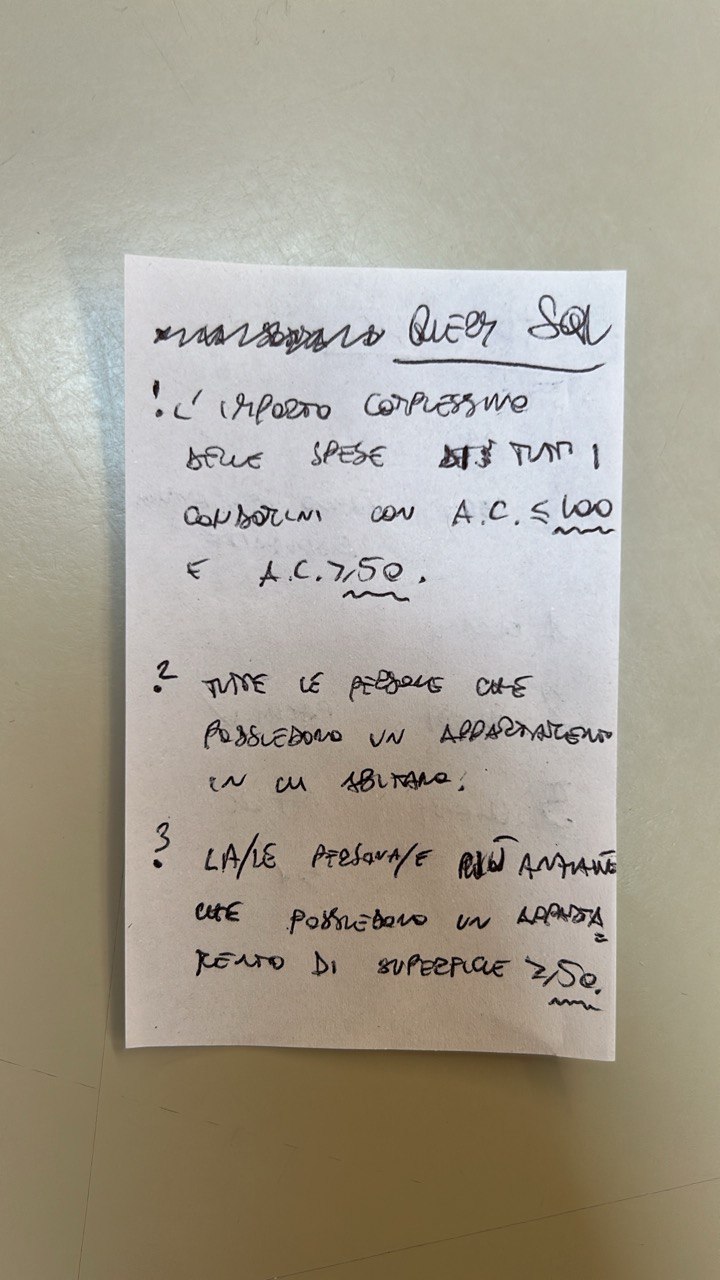 QUERY SQL
1. L'IMPORTO COMPLESSIVO
DELLE SPESE DI TUTTI I
CONDOMINI CON A.C. ≤ 100
E A.C. ≥ 50.
2. TUTTE LE PERSONE CHE
POSSIEDONO UN APPARTAMENTO
IN CUI ABITANO.
3. LA/LE PERSONA/E PIÙ ANZIANE
CHE POSSIEDONO UN APPARTA
MENTO DI SUPERFICIE ≥ 50.